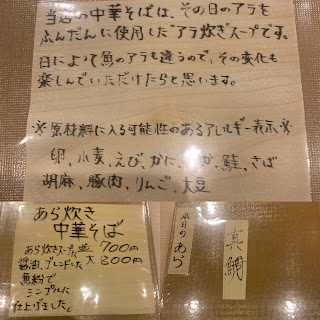 当店の中華そばは、その日のアラを
ふんだんに使用した"アラ炊きスープ"です。
日によって魚のアラも違うので、その変化も
楽しんでいただけたらと思います。
※原材料に入る可能性のあるアレルギー表示※
卵、小麦、えび、かに、いか、鮭、さば
胡麻、豚肉、りんご、大豆
あら炊き
中華そば
あら炊きスープに 並 700円
醤油ブレンドした 大 800円
魚粉で
シンプルに
仕上げました
本日のあら
真鯛